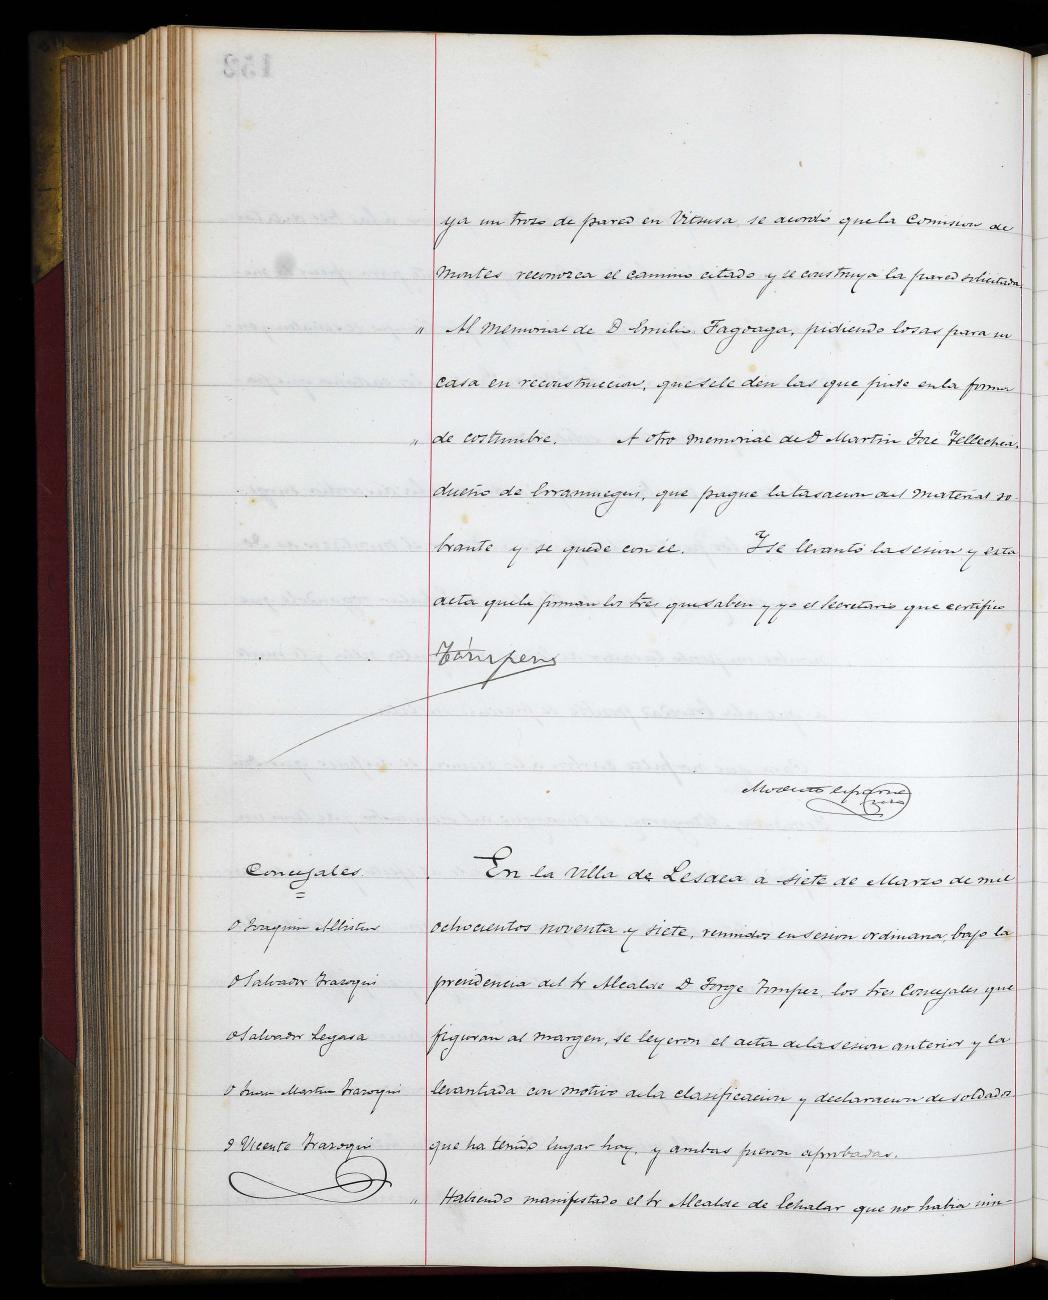 ya un trozo de pared en Vitsusa, se acordó que la Comision de
Montes reconozca el camino citado y se construya la pared solicitada.
" Al memorial de D Emilio Fagoaga, pidiendo losas para su
casa en reconstruccion, que se le den las que pide en la forma
" de costumbre. A otro memorial de D Martin José Tellechea,
dueño de Erramuegui, que pague la tasacion del material so-
brante y se quede con el. Y se levantó la sesion y esta
acta que la firman los tres que saben y yo el Secretario que certifico
Tómperz
Modesto Esparza
Concejales
En la Villa de Lesaca a siete de Marzo de mil
D Joaquin Albistur
ochocientos noventa y siete, reunidos en sesion ordinaria, bajo la
D Salvador Irazoqui
presidencia del Sr Alcalde D Jorge Tomperz, los tres Concejales que
D Salvador Legasa
figuran al margen, se leyeron el acta de la sesion anterior y la
D Juan Martin Irazoqui
levantada con motivo de la clasificacion y declaracion de soldados
D Vicente Irazoqui
que ha tenido lugar hoy, y ambas fueron aprobadas.
" Habiendo manifestado el Sr Alcalde de Echalar que no habia nin-